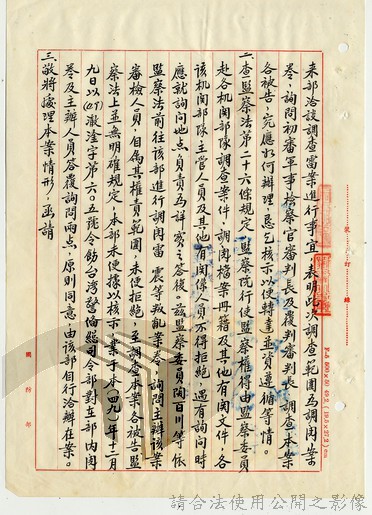 來部洽談調查雷案進行事宜,表明此次調查範圍為調閱案
卷,詢問初審軍事檢察官審判長及覆判審判長,調查本案
各被告,究應如何辦理,恳乞核示以便轉達並資遵循等情。
二、查監察法第二十六條規定:監察院行使監察權得由監察委員
赴各机関部隊調查案件,調閱檔案冊籍及其他有関文件,各
該机関部隊主管人員及其他有関係人員不得拒絕,遇有詢問時
應就詢問地点負責為詳實之答復。茲監察委員陶百川等依
監察法前往該部進行調閱雷震等叛亂案卷,詢問主辦該案
審檢人員,自屬其權責範圍,未便拒絕,至調查本案各被告監
察法上並無明確規定,本部未便據以核示,業于本(四九)年十二月
九日以(49)澈淦字第六〇五號令飭台灣警備總司令部對在部內閱
卷及主辦人員答覆詢問兩点,原則同意,由該部自行洽辦在案。
三、敬將處理本案情形,函請
裝訂線
國防部
請合法使用公開之影像